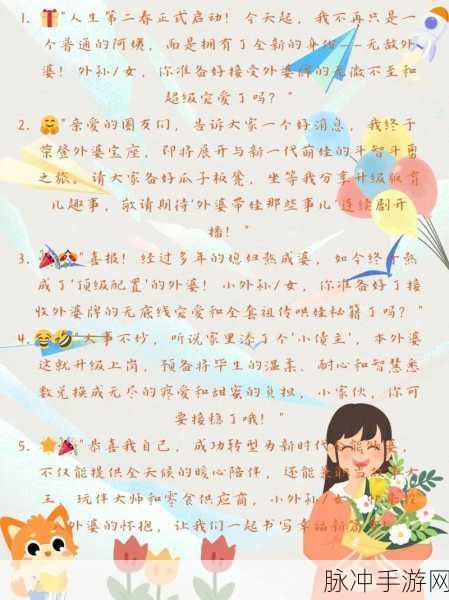 1. "人生第二春正式启动！今天起，我不再只是一
个普通的阿姨，而是拥有了全新的身份——无敌外
婆！外孙/女，你准备好接受外婆牌的无微不至和
超级宠爱了吗？"
2. "亲爱的圈友们，告诉大家一个好消息，我终于
荣登外婆宝座，即将展开与新一代萌娃的斗智斗勇
之旅。请大家备好瓜子板凳，坐等我分享升级版育
儿趣事，敬请期待'外婆带娃那些事儿'连续剧开
播！"
3. "喜报！经过多年的媳妇熬成婆，如今终于熬
成了'顶级配置'的外婆！小外孙/女，你准备好了接
收外婆牌的无底线宠爱和全套祖传哄娃秘籍了吗？"
4. "大事不妙，听说家里添了个'小债主'，本外婆
这就升级上岗，预备将毕生的温柔、耐心和智慧悉
数兑换成无尽的疼爱和甜蜜的负担，小家伙，你可
要接稳了哦！"
5. "恭喜我自己，成功转型为新时代
不仅能提供全天候的暖心陪伴，还能
王、玩伴大师和零食供应商，小外孙/女
外婆的怀抱，让我们一起书写幸福新篇
脉冲手游网